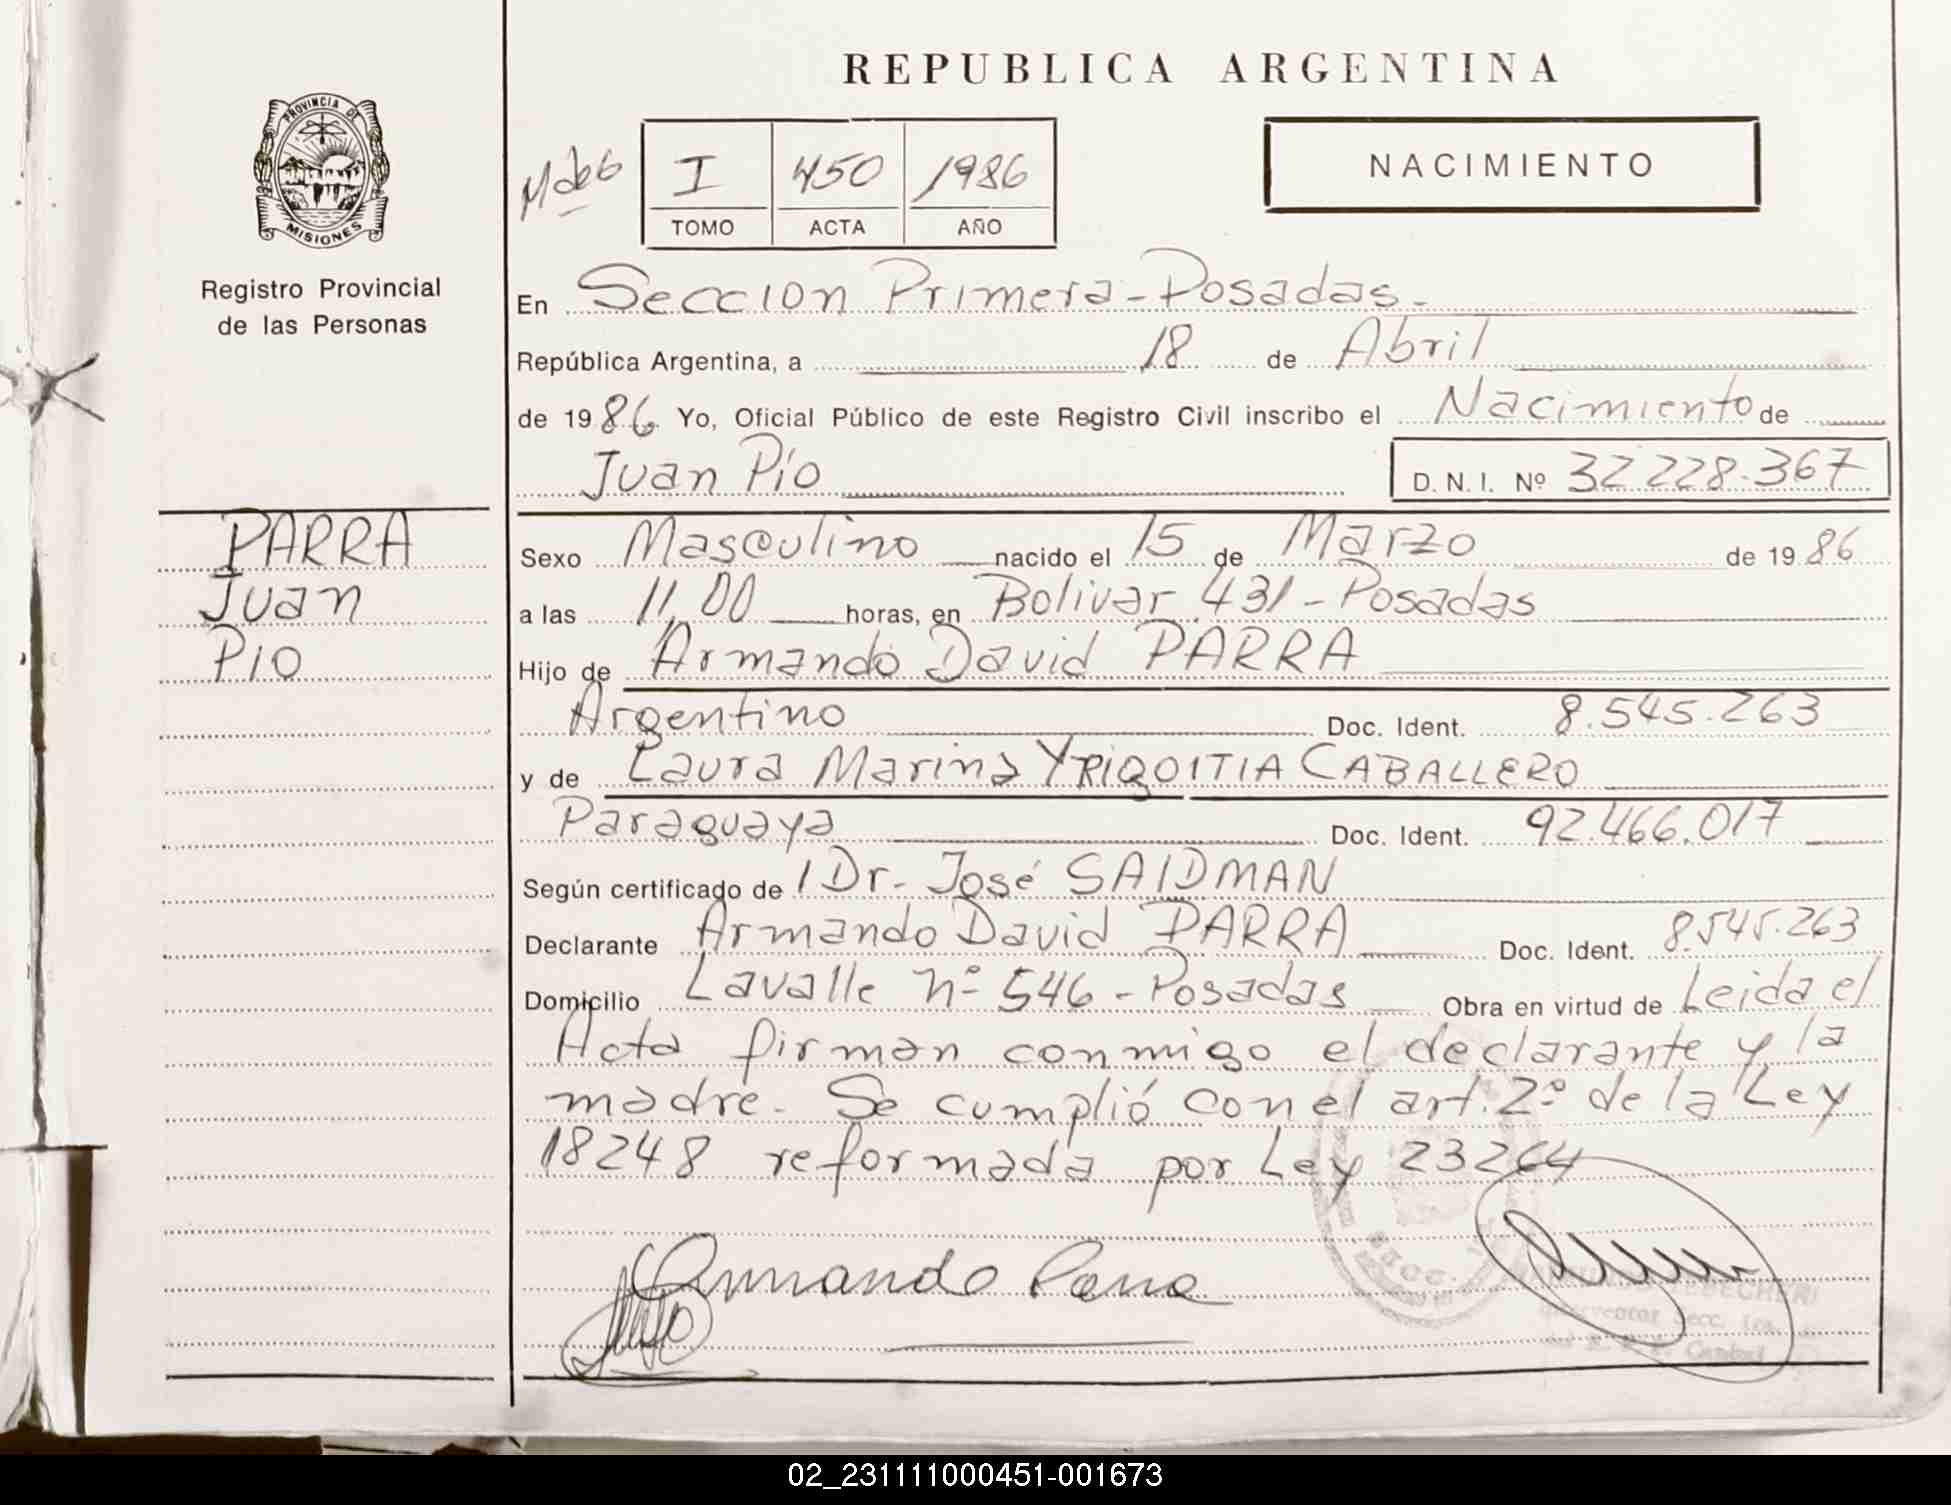 REPUBLICA ARGENTINA
PROVINCIA DE
MISIONES
Registro Provincial
de las Personas
I 450 1986
TOMO ACTA AÑO
NACIMIENTO
En Seccion Primera - Posadas.
República Argentina, a 18 de Abril
de 1986. Yo, Oficial Público de este Registro Civil inscribo el Nacimiento de
Juan Pío D.N.I. Nº 32.228.367
PARRA
Juan
Pio
Sexo Masculino nacido el 15 de Marzo de 1986
a las 11,00 horas, en Bolivar 431 - Posadas
Hijo de Armando David PARRA
Argentino Doc. Ident. 8.545.263
y de Laura Marina YRIGOITIA CABALLERO
Paraguaya Doc. Ident. 92.466.017
Según certificado de Dr. José SAIDMAN
Declarante Armando David PARRA Doc. Ident. 8.545.263
Domicilio Lavalle Nº 546 - Posadas Obra en virtud de Leida el
Acta firman conmigo el declarante y la
madre. Se cumplió con el art. 2º de la Ley
18248 reformada por Ley 23264
Armando Parra
02_231111000451-001673